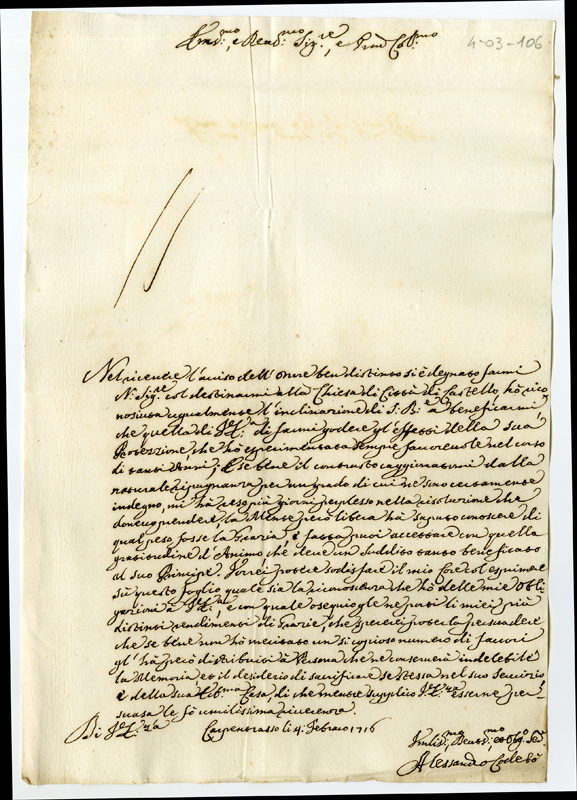 Em.mo, e Rend.mo Sig.re, e Pron Col.mo
4-03-106
Nel ricevere l'aviso dell'Onore ben distinto si è degnato farmi
N. Sig.re col destinarmi alla Chiesa di Città di Castello, hò rico
nosciuta ugualmente l'inclinazione di S. B.e à beneficarmi,
che quella di V. Em.za di farmi godere gl'effetti della sua
Protezzione, che hò esperimentata sempre favorevole nel corso
di tanti Anni; E se bene il contrasto cagionatomi dalla
naturale ripugnanza per un grado di cui ne sono certamente
indegno, mi hà reso più giorni perplesso nella risoluzione che
dovevo prendere, la Mente però libera hà saputo conoscere di
qual peso fosse la Grazia, e fattala poi accettare con quella
gratitudine d'Animo che deve un Suddito tanto beneficato
al suo Principe. Vorrei potere sodisfare il mio Core col esprimere
sù questo foglio quale sia la riconoscenza che hò delle mie Obli
gazioni à V. Em.za, e con quale ossequio gle ne porti li miei più
distinti rendimenti di Grazie, che spererei poterla persuadere
che se bene non hò meritato un si copioso numero di favori
gl'hà però distribuiti à Persona che ne conserverà indelebile
la Memoria et il desiderio di sacrificare se stessa nel suo Servizio,
e della sua Ecc.ma Casa, di che mentre supplico V. Em.za esserne per
suasa le fò umilissima riverenza.
Di V. Em.za
Carpentrasso li 4. Febraro 1716
Umilis.mo Devotis.mo et Oblig.o Ser.
Alessandro Codebò